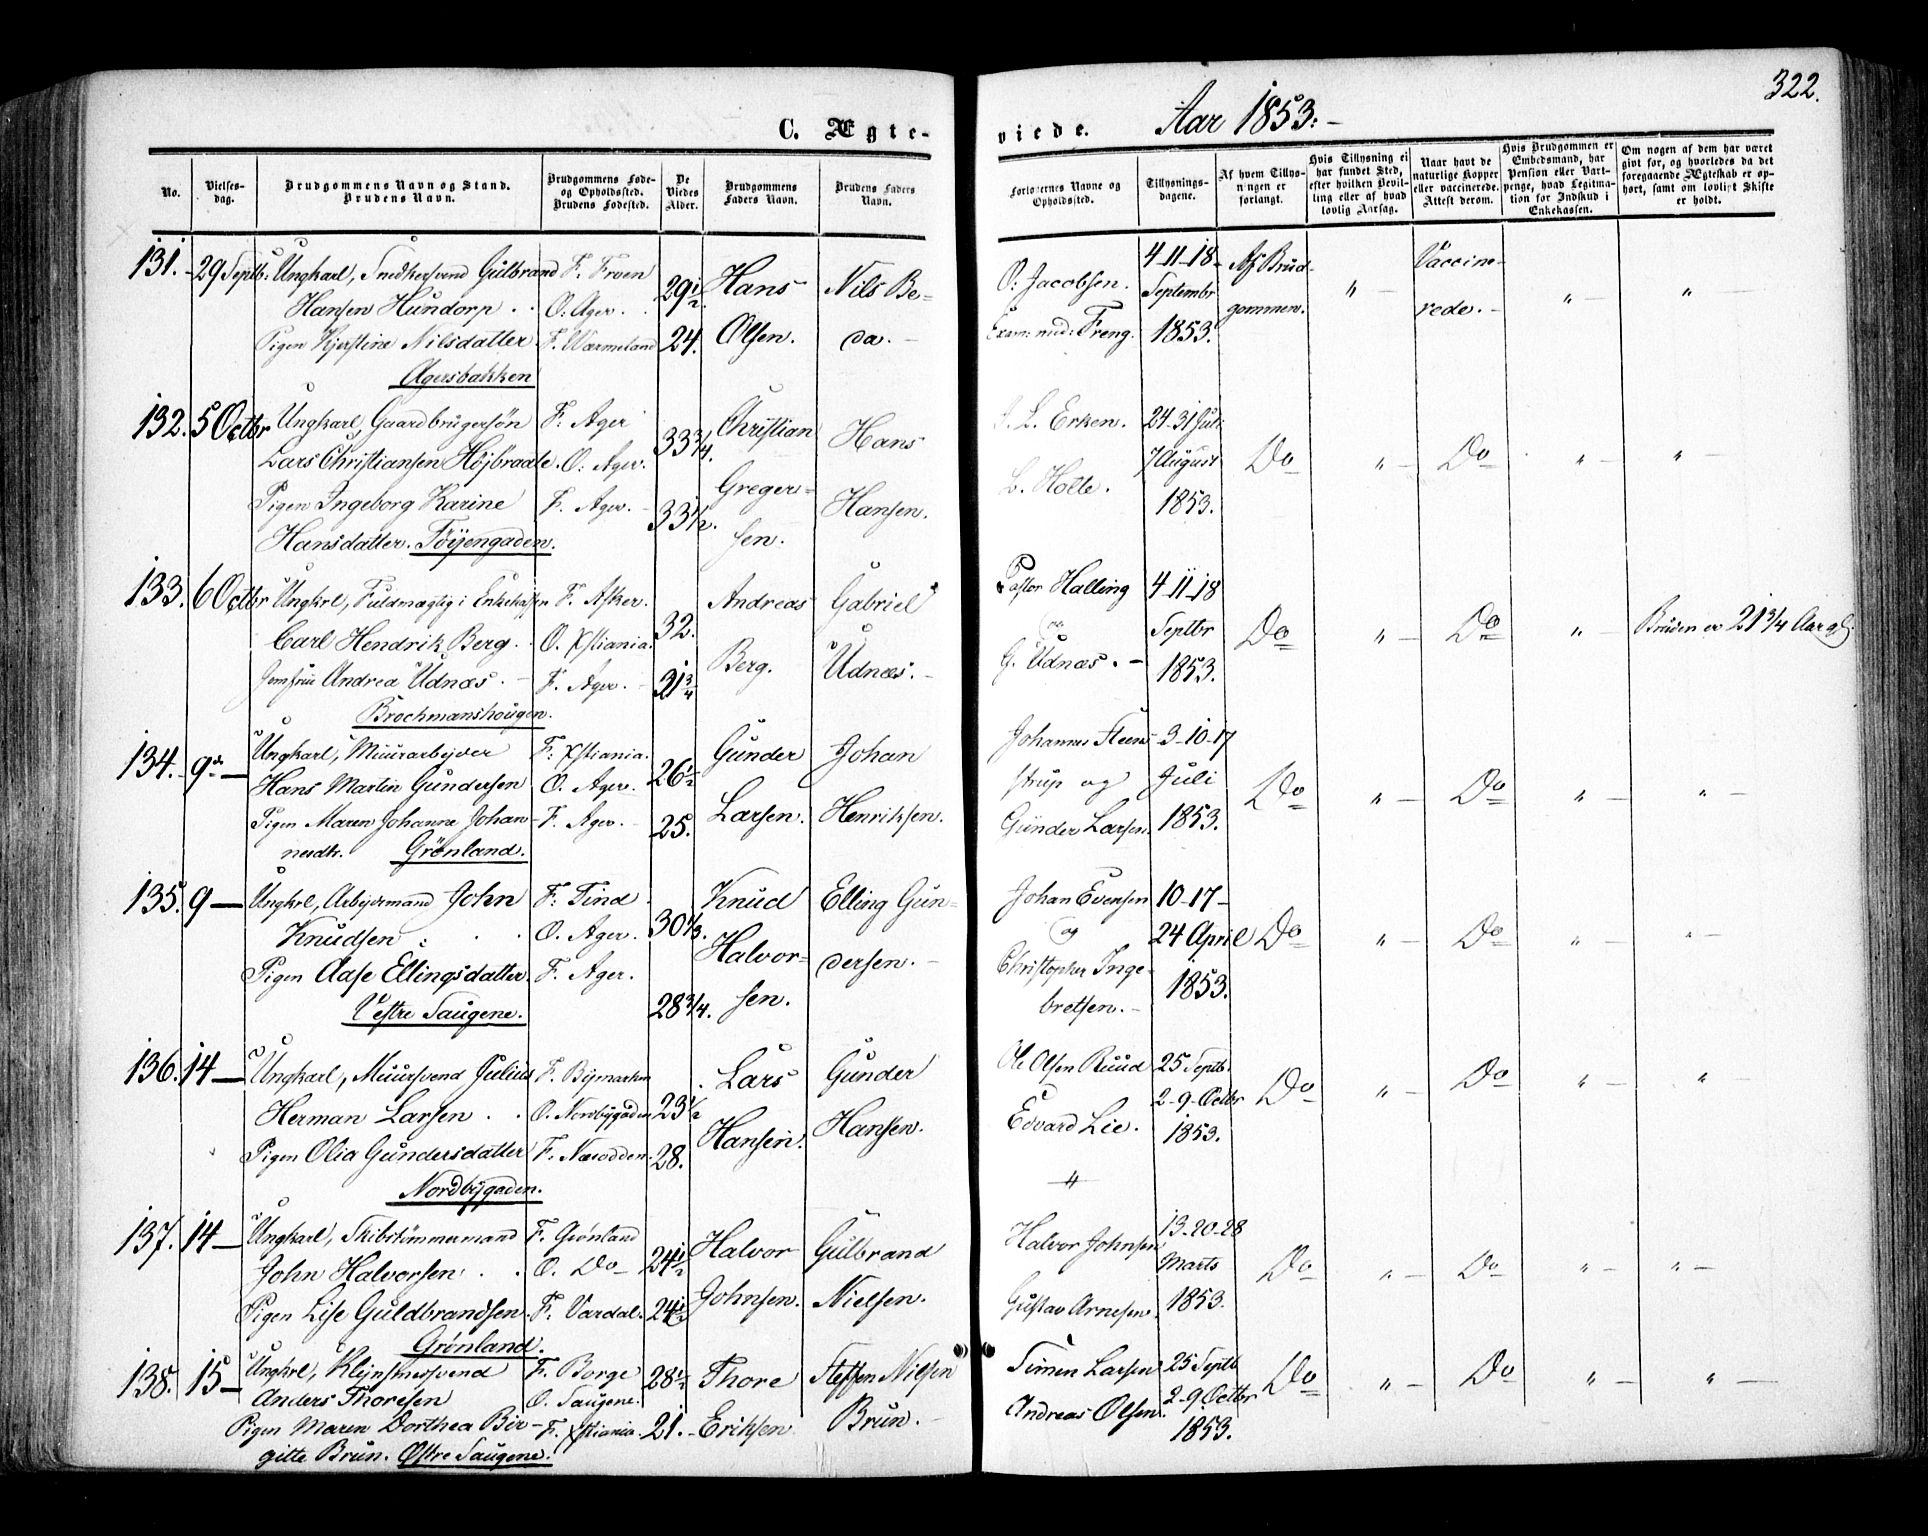 322.
C. Ægteviede. Aar 1853.
No.
Vielsesdag.
Brudgommens Navn og Stand.
Brudens Navn.
Brudgommens Føde-
og Opholdssted.
Brudens Fødested.
De
Viedes
Alder.
Brudgommens
Faders Navn.
Brudens Faders
Navn.
Forlovernes Navne og
Opholdssted.
Tillysnings-
dagene.
Af hvem Tillys-
ningen er
forlangt.
Hvis Tillysning ei
har fundet Sted,
efter hvilken Bevil-
ling eller af hvad
lovlig Aarsag.
Naar havt de
naturlige Kopper
eller vaccinerede.
Attest derom.
Hvis Brudgommen er
Embedsmand, har
Pension eller Vart-
penge, hvad Legitima-
tion for Indskud i
Enkekassen.
Om nogen af dem har været
givt for, og hvorledes da det
foregaaende Ægteskab er op-
hørt, samt om lovligt Skifte
er holdt.
131. 29 Septb: Ungkarl, Snedkersvend Gulbrand F. Froen 29½ Hans Nils Be- O: Jacobsen. 4-11-18- Af Brud- " Vaccine- " "
Hansen Hundorp. O: Ager. Olsen. da. Septembr gommen. rede.
Pigen Kjerstine Nilsdatter F. Wærmeland 24. Exam: med: Freng. 1853.
Agersbakken
132. 5 Octbr Ungkarl, Gaardbrugersøn F. Ager 33¾. Christian Hans L. Erken. 24-31 Juli Do " Do " "
Lars Christiansen Højbraate. O: Ager. Greger- Hansen. L. Holte. 7 August
Pigen Ingeborg Karine F. Ager. 33½. sen. 1853.
Hansdatter. Töyengaden.
133. 6 Octbr Ungkrl, Fuldmægtig i Enkekassen F. Asker. 32. Andreas Gabriel Pastor Halling 4-11-18 Do " Do " Bruden er 21¾ Aar gl.
Carl Hendrik Berg. O. Xstiania. Berg. Udnæs. og Septbr
Jomfrue Andrea Udnæs. F. Ager. 21¾ G. Udnæs. 1853.
Brochmanshougen.
134. 9de Ungkarl, Muurarbejder F: Xstiania. 26½ Gunder Johan Johannes Steens- 3-10-17 Do " Do " "
Hans Martin Gundersen O. Ager. Larsen. Henriksen. strup og Juli
Pigen Maren Johanne Johan- F. Ager. 25. Gunder Larsen. 1853.
nesdtr. Grønland.
135. 9 Ungkrl, Arbejdsmand John F: Tind 30⅓. Knud Elling Gun- Johan Evensen 10-17- Do " Do " "
Knudsen O. Ager. Halvor- dersen. og 24 April
Pigen Aase Ellingsdatter. F. Ager. 28¾. sen. Christopher Inge- 1853.
Vestre Saugene. bretsen.
136. 14 Ungkarl, Muursvend Julius F. Bymarken 23½ Lars Gunder Ole Olsen Ruud 25 Septb. Do " Do " "
Herman Larsen O. Nordbygaden Hansen. Hansen. Edvard Lie. 2-9-Octbr
Pigen Olia Gundersdatter F. Næsodden. 28. 1853.
Nordbygaden.
137. 14 Ungkarl, Skibstømmermand F. Grønland 24½ Halvor Gulbrand Halvor Johnsen 13-20-28 Do " Do " "
John Halvorsen O. Do Johnsen. Nielsen. Marts
Pigen Lise Guldbrandsen. F. Vardal. 24½ Gustav Arnesen. 1853.
Grønland.
138. 15 Ungkrl, Klejnsmedsvend F. Borge 28½ Thore Steffen Nilsen Simen Larsen 25 Septb. Do " Do " "
Anders Thoresen O. Saugene. Eriksen Brun. Andreas Olsen. 2-9 Octbr
Pigen Maren Dorthea Bir- F. Xstiania. 21. 1853.
gitte Brun. Østre Saugene.